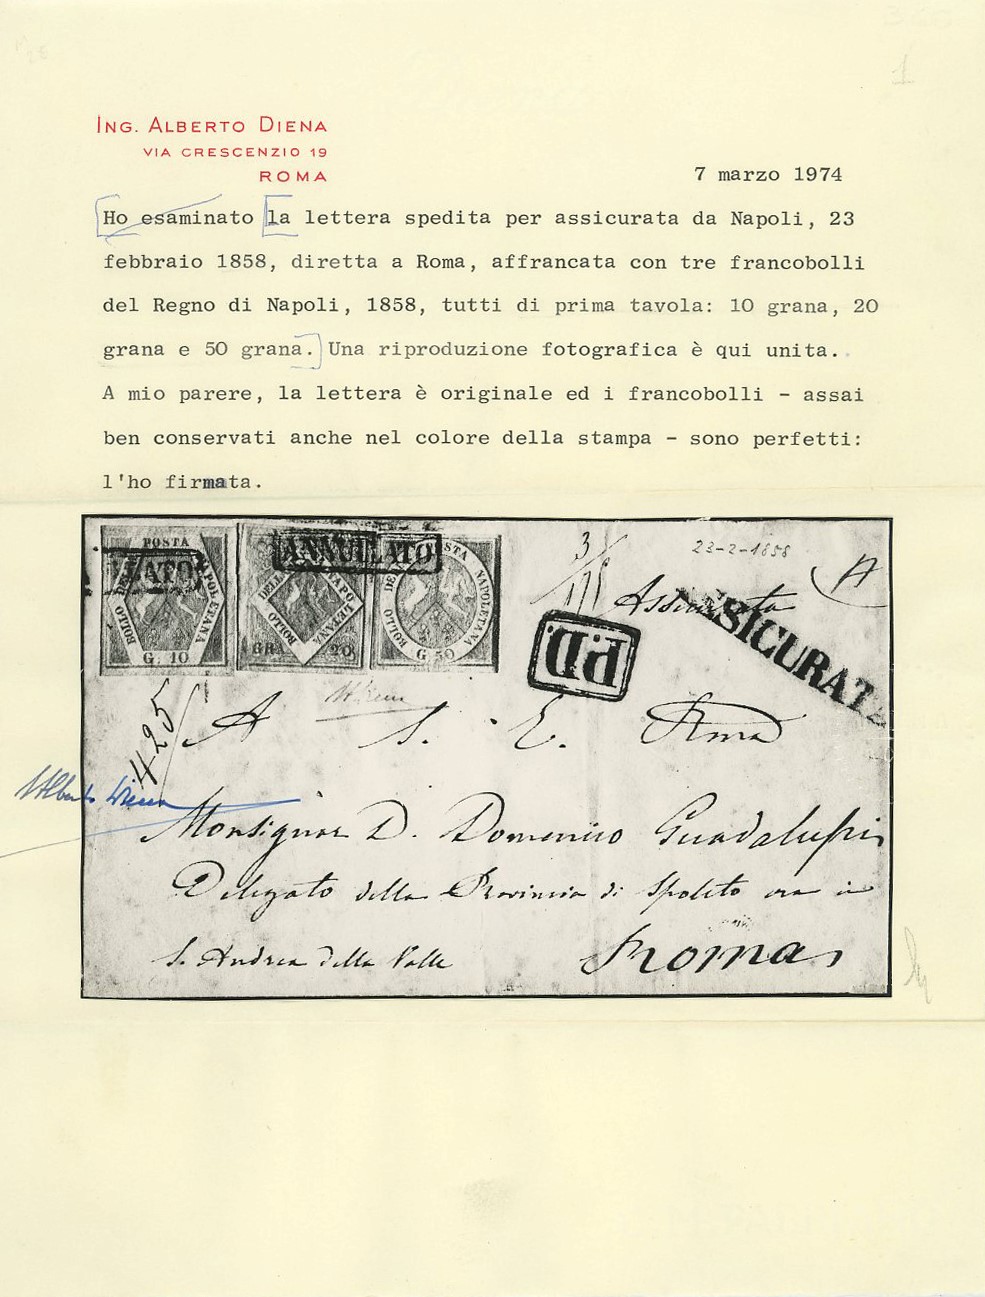 ING. ALBERTO DIENA
VIA CRESCENZIO 19
ROMA
7 marzo 1974
Ho esaminato la lettera spedita per assicurata da Napoli, 23
febbraio 1858, diretta a Roma, affrancata con tre francobolli
del Regno di Napoli, 1858, tutti di prima tavola: 10 grana, 20
grana e 50 grana. Una riproduzione fotografica è qui unita.
A mio parere, la lettera è originale ed i francobolli - assai
ben conservati anche nel colore della stampa - sono perfetti:
l'ho firmata.
POSTA NAPOLETANA BOLLO DELLA
G. 10
ANNULLATO
BOLLO DELLA NAPOLETANA
GRA 20
BOLLO DELLA POSTA NAPOLETANA
G. 50
23-2-1858
Assicurata
ASSICURATA
P.D.
425
A S. E. Rma
Alberto Diena
Monsignor D. Domenico Guadalupi
Delegato della Provincia di Spoleto ora in
S. Andrea della Valle Roma